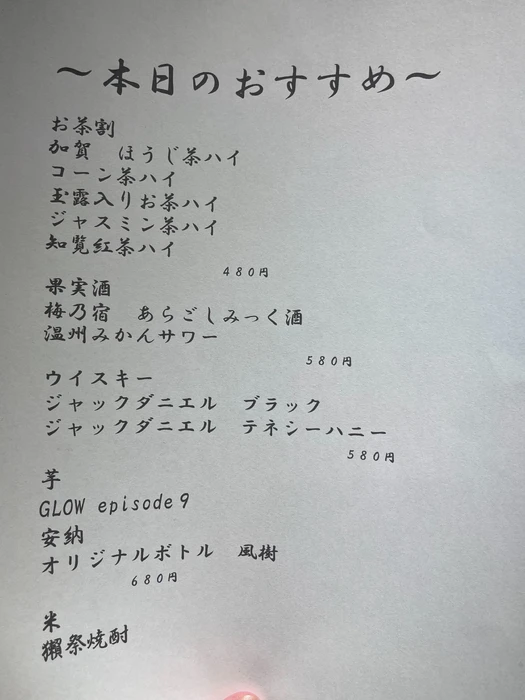 ～本日のおすすめ～
お茶割
加賀　ほうじ茶ハイ
コーン茶ハイ
玉露入りお茶ハイ
ジャスミン茶ハイ
知覧紅茶ハイ
480円
果実酒
梅乃宿　あらごしみっく酒
温州みかんサワー
580円
ウイスキー
ジャックダニエル　ブラック
ジャックダニエル　テネシーハニー
580円
芋
GLOW episode9
安納
オリジナルボトル　風樹
680円
米
獺祭焼酎